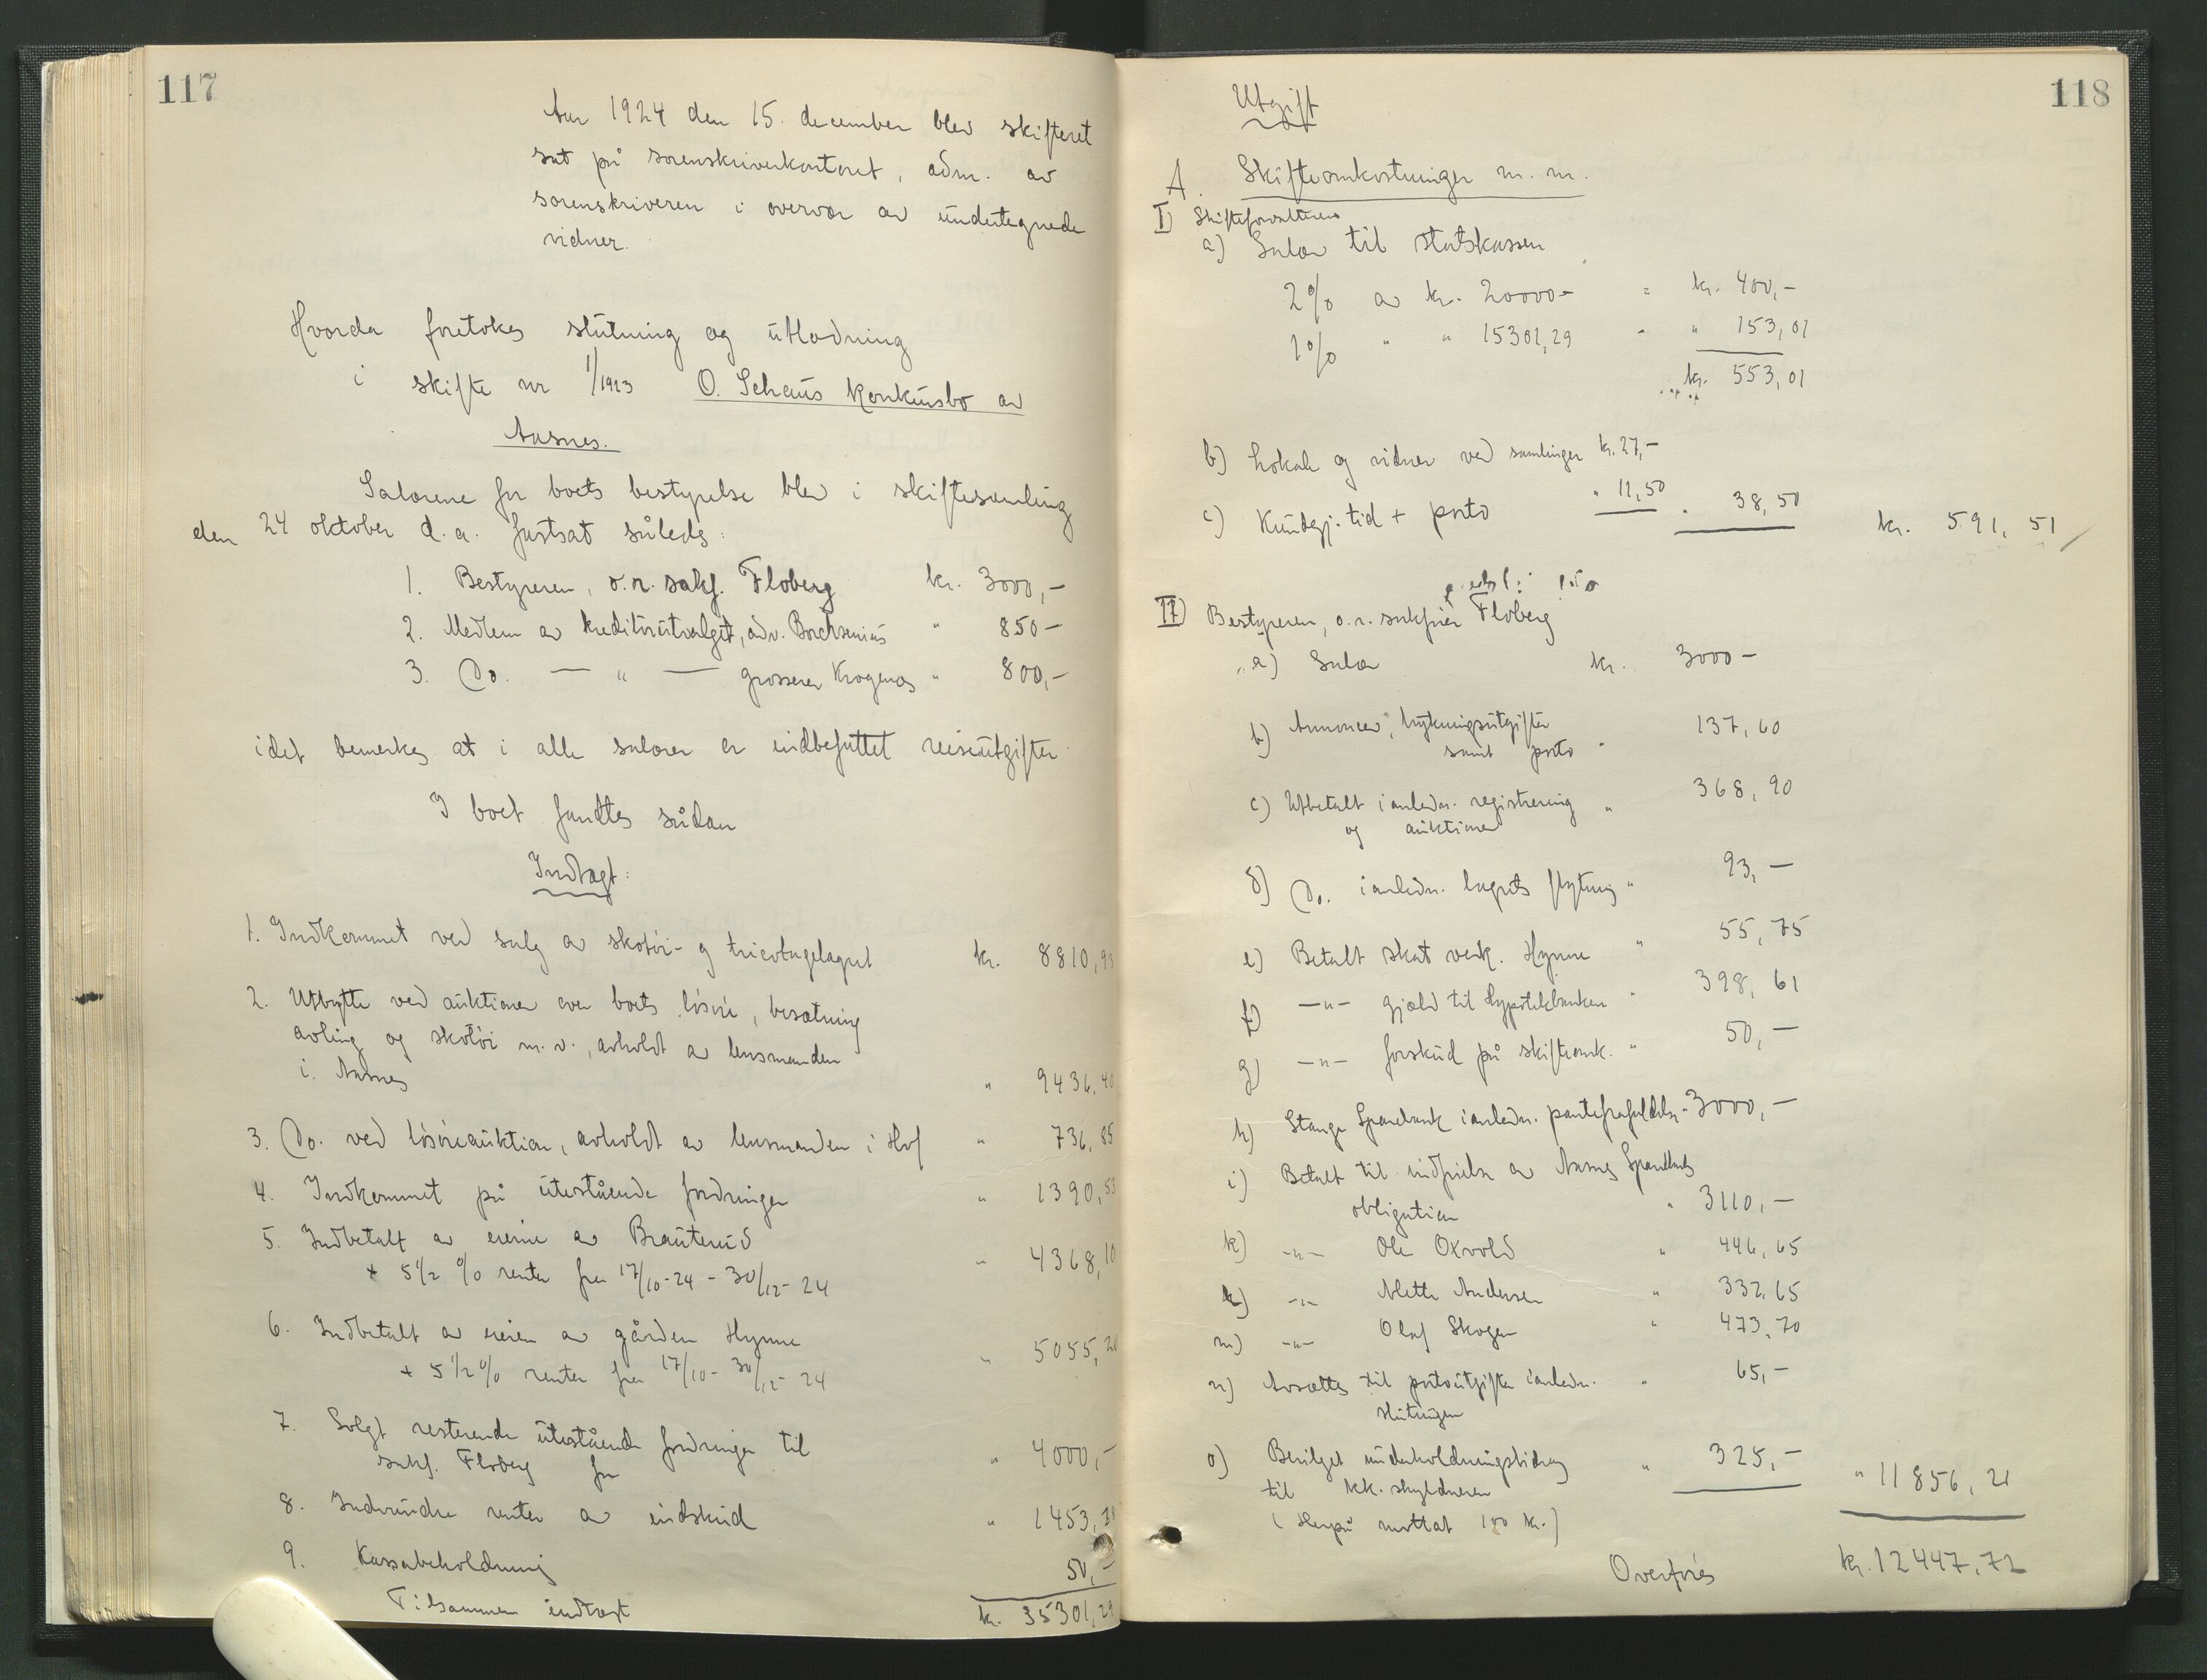 117
Aar 1924 den 15. december blev skifteret
sat på sorenskriverkontoret, adm. av
sorenskriveren i overvær av undertegnede
vidner.
Hvorda foretokes slutning og utlodning
i skifte nr 1/1923 O. Schøus konkursbo av
Aasnes.
Salærene for boets bestyrelse blev i skiftesamling
den 24 oktober d.a. fastsat således:
1. Bestyreren, o.r. sakf. Floberg kr. 3000,-
2. Medlem av kreditorutvalget, adv. Borchsenius " 850 -
3. Do. — " — grosserer Krogenæs " 800,-
idet bemerkes at i alle salærer er indbefattet reiseutgifter
I boet fandtes sådan
Indtægt:
1. Indkommet ved salg av skotøi- og tricotagelagret kr. 8810,93
2. Utbytte ved auktioner over boets løsøre, besætning
avling og skotøi m.v., avholdt av lensmanden
i. Aasnes " 9436,40
3. Do. ved løsøreauktion, avholdt av lensmanden i Hof " 736,85
4. Indkommet på utestående fordringer " 1390,53
5. Indbetalt av eierne av Brauterud
+ 5 1/2 % renter fra 17/10-24 - 30/12-24 " 4368,10
6. Indbetalt av eieren av gården Hynne
+ 5 1/2 % renter fra 17/10 - 30/12-24 " 5055,20
7. Solgt resterende utestående fordringer til
sakf. Floberg for " 4000,-
8. Indvundne renter av indskud " 1453,28
9. Kassabeholdning 50,-
Tilsammen indtægt kr. 35301,29
118
Utgift
A. Skifteomkostninger m. m.
I) Skifteforvalteren
a) Salær til statskassen
2% av kr. 20000- = kr. 400,-
1% " " 15301,29 - " 153,01
kr. 553,01
b) Lokale og vidner ved samlinger kr. 27,-
c) Kundgj. tid + porto " 11,50 " 38,50 kr. 591,51
II) Bestyreren, o.r. sakfører Floberg
a) Salær kr. 3000 -
b) Annoncer, trykningsutgifter
samt porto " 137,60
c) Utbetalt i anledn. registrering "
og auktioner 368,90
d) Do. i anledn. lagrets flytning " 93,-
e) Betalt skat vedk. Hynne " 55,75
f) -"- gjæld til Hypotekbanken " 398,61
g) -"- forskud på skifteomk. " 50,-
h) Stange Sparebank i anledn. pantefrafaldelse - 3000,-
i) Betalt til indfrielse av Aasnes Sparebanks
obligation " 3110,-
k) -"- Ole Oxvold " 446,65
l) -"- Mette Andersen " 332,65
m) -"- Olaf Skogen " 473,70
n) Avsættes til portoutgifter i anledn. " 65,-
slutningen
o) Bevilget underholdningsbidrag " 325,- " 11856,21
til kk. skyldneren
(Herpå mottat 100 kr.)
Overføres kr. 12447,72